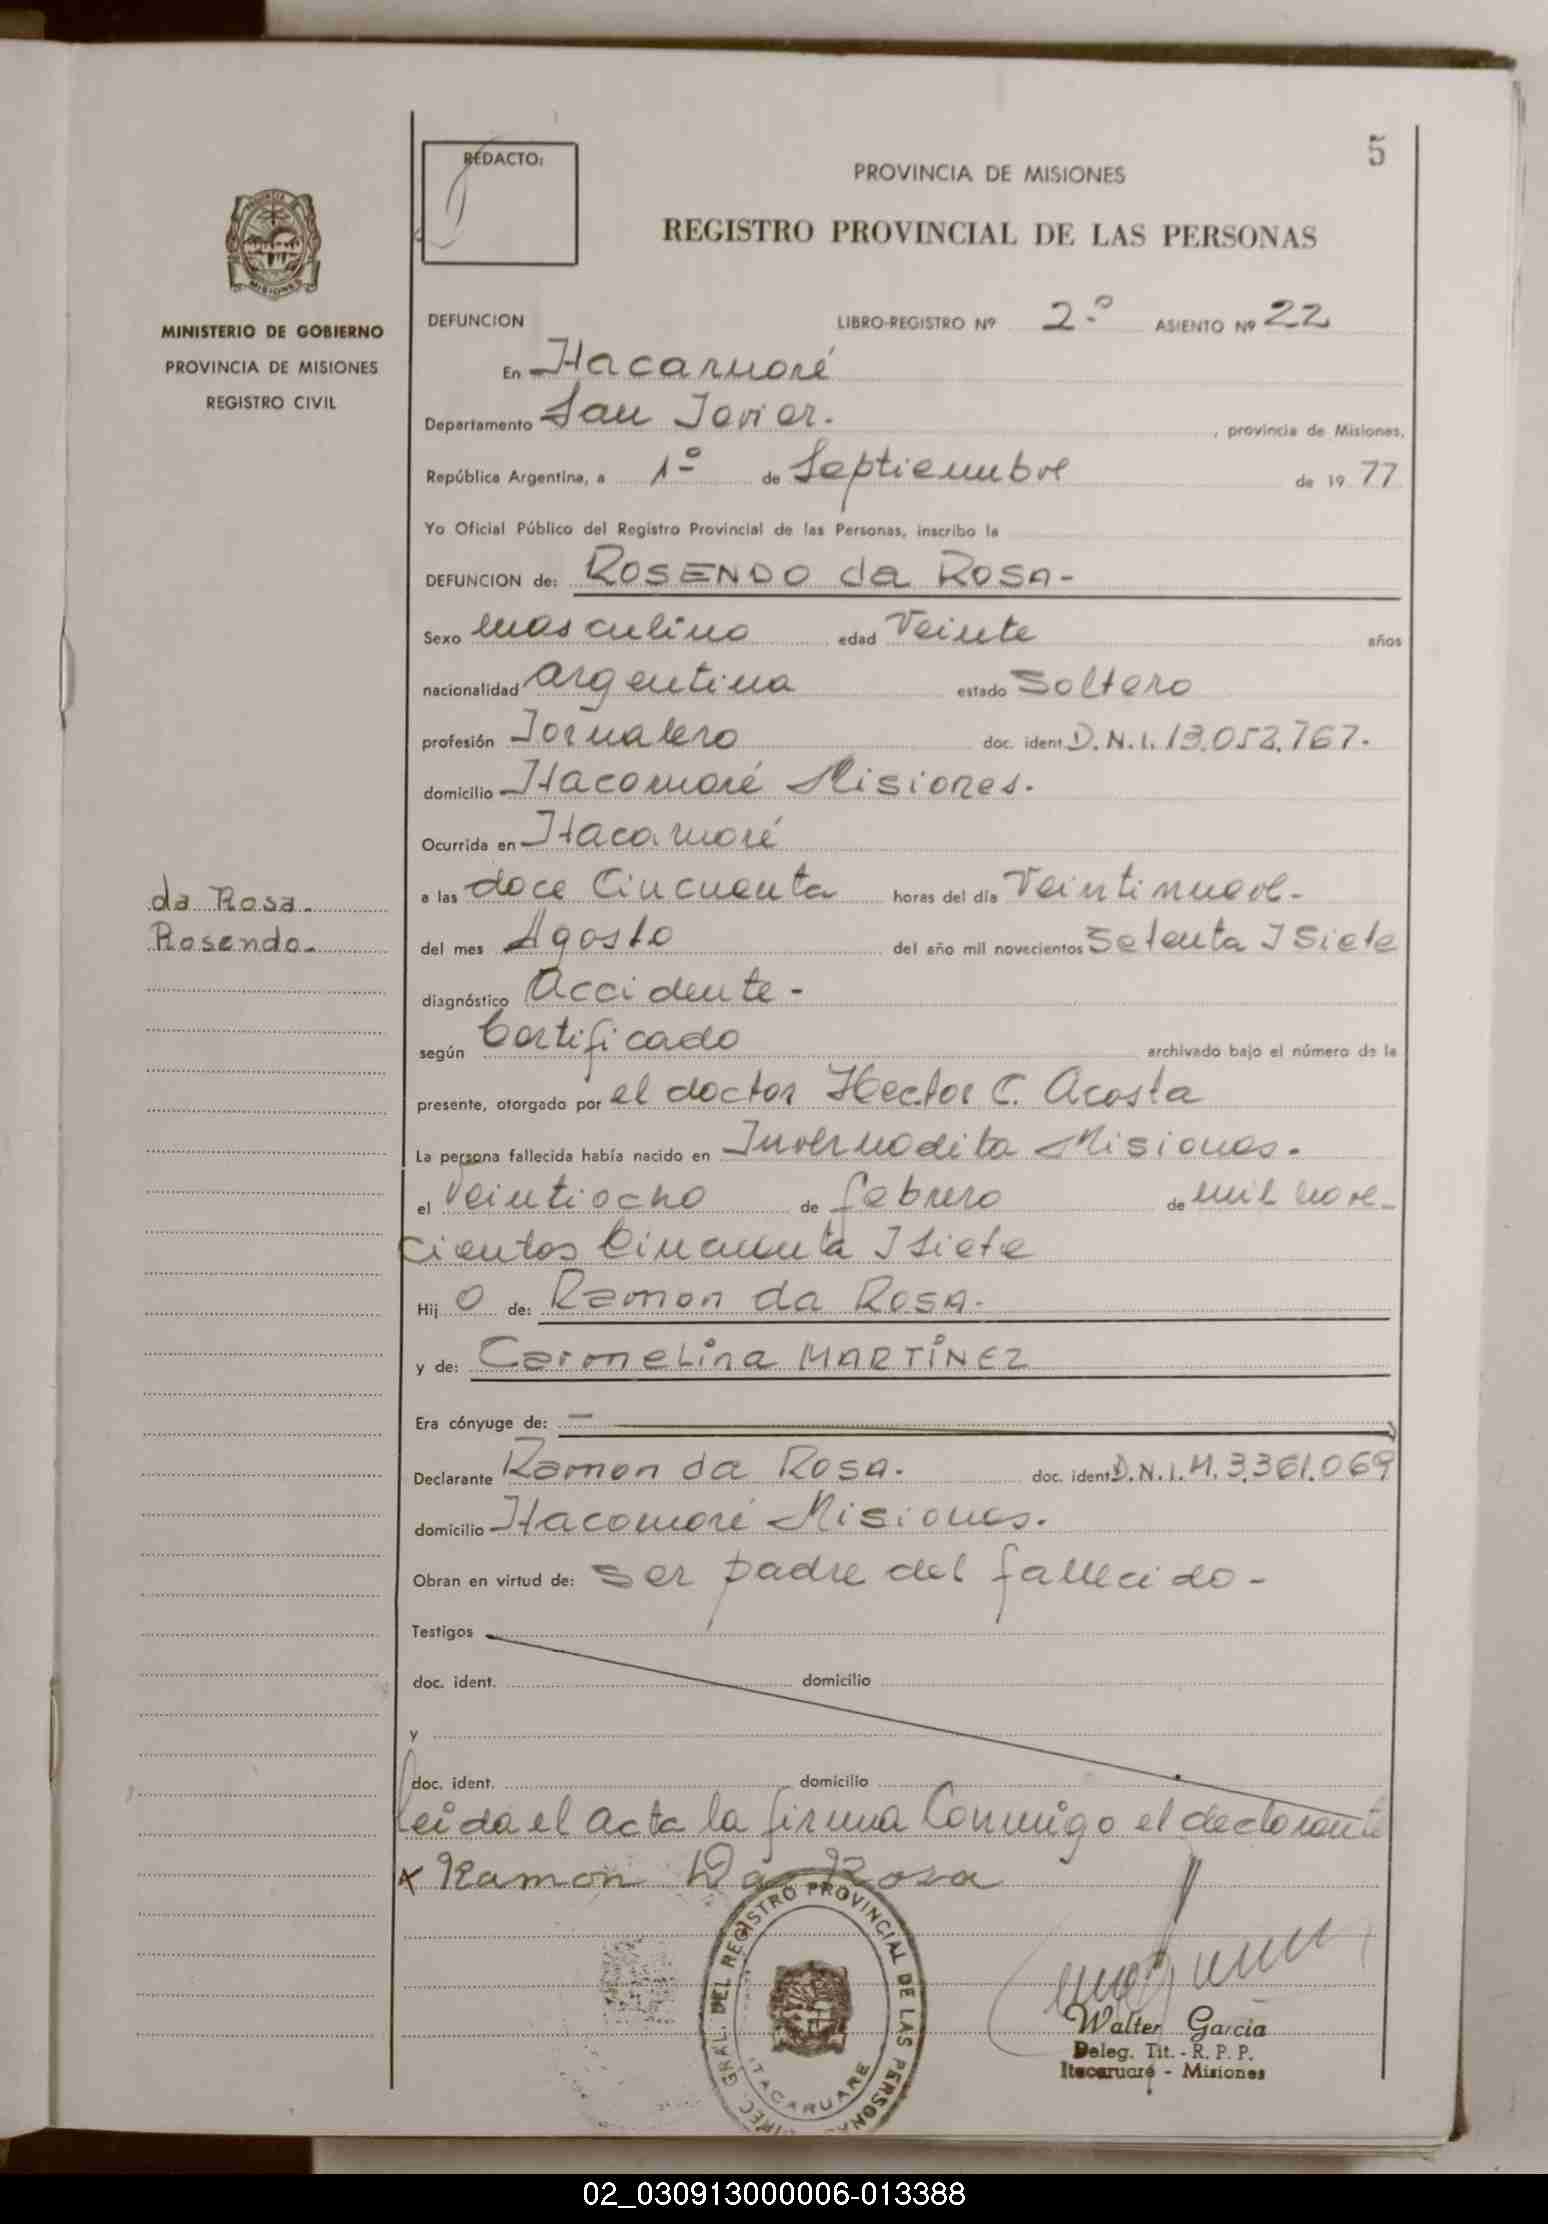 5
REDACTO:
PROVINCIA DE MISIONES
REGISTRO PROVINCIAL DE LAS PERSONAS
PROVINCIA DE
MISIONES
MINISTERIO DE GOBIERNO
PROVINCIA DE MISIONES
REGISTRO CIVIL
DEFUNCION LIBRO-REGISTRO Nº 2.º ASIENTO Nº 22
En Itacaruaré
Departamento San Javier. , provincia de Misiones,
República Argentina, a 1º de Septiembre de 19 77
Yo Oficial Público del Registro Provincial de las Personas, inscribo la
DEFUNCION de: ROSENDO da ROSA-
Sexo masculino edad Veinte años
nacionalidad argentina estado Soltero
profesión Jornalero doc. ident D.N.I. 13.052.767.
domicilio Itacaruaré Misiones.
Ocurrida en Itacaruaré
da Rosa.
Rosendo-
a las doce Cincuenta horas del día Veintinueve-
del mes Agosto del año mil novecientos Setenta I Siete
diagnóstico Accidente-
según Certificado archivado bajo el número de la
presente, otorgado por el doctor Hector C. Acosta
La persona fallecida había nacido en Invernadita Misiones.
el Veintiocho de febrero de mil nove-
cientos Cincuenta I Siete
Hij o de: Ramon da ROSA.
y de: Carmelina MARTÍNEZ
Era cónyuge de: —
Declarante Ramon da Rosa. doc. ident D.N.I. M. 3.361.069
domicilio Itacaruaré Misiones.
Obran en virtud de: Ser padre del fallecido-
Testigos
doc. ident. domicilio
y
doc. ident. domicilio
leida el acta la firma Conmigo el declarante
x Ramon Da Rosa
DIREC. GRAL. DEL REGISTRO PROVINCIAL DE LAS PERSONAS
ITACARUARE
Walter Garcia
Deleg. Tit. - R. P. P.
Itacaruaré - Misiones
02_030913000006-013388